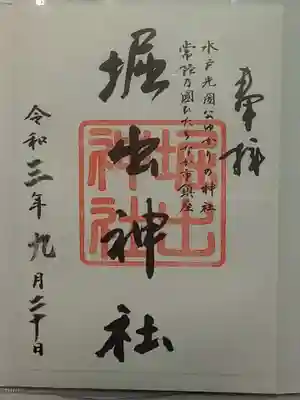 奉拝
水戸光圀公ゆかりの神社
常陸乃國ひたちなか市鎮座
堀出神社
堀出
神社
令和三年九月二十日